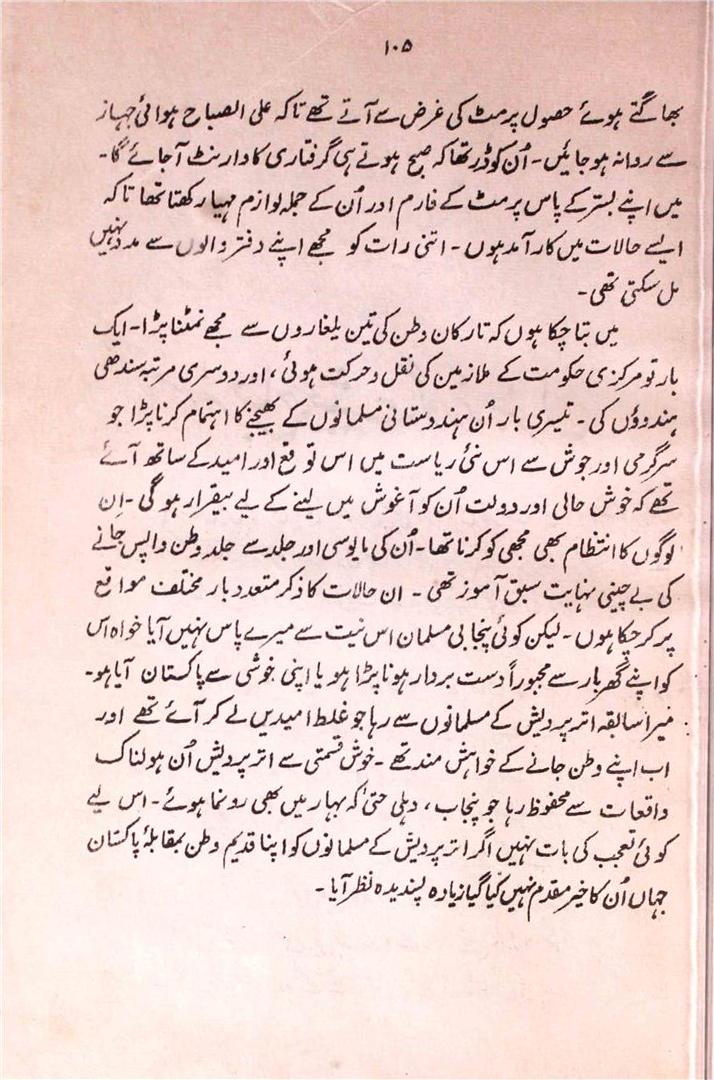 ۱۰۵
بھاگتے ہوئے حصول پرمٹ کی غرض سے آتے تھے تاکہ علی الصباح ہوائی جہاز
سے روانہ ہو جائیں۔ اُن کو ڈر تھا کہ صبح ہوتے ہی گرفتاری کا وارنٹ آجائے گا۔
میں اپنے بستر کے پاس پرمٹ کے فارم اور اُن کے جملہ لوازم مہیا رکھتا تھا تاکہ
ایسے حالات میں کار آمد ہوں۔ اتنی رات کو مجھے اپنے دفتر والوں سے مدد نہیں
مل سکتی تھی۔
میں بتا چکا ہوں کہ تارکان وطن کی تین یلغاروں سے مجھے نمٹنا پڑا۔ ایک
بار تو مرکزی حکومت کے ملازمین کی نقل و حرکت ہوئی، اور دوسری مرتبہ سندھی
ہندوؤں کی۔ تیسری بار اُن ہندوستانی مسلمانوں کے بھیجنے کا اہتمام کرنا پڑا جو
سرگرمی اور جوش سے اس نئی ریاست میں اس توقع اور امید کے ساتھ آئے
تھے کہ خوش حالی اور دولت اُن کو آغوش میں لینے کے لیے بیقرار ہوگی۔ اِن
لوگوں کا انتظام بھی مجھی کو کرنا تھا۔ اُن کی مایوسی اور جلد سے جلد وطن واپس جانے
کی بے چینی نہایت سبق آموز تھی۔ ان حالات کا ذکر متعدد بار مختلف مواقع
پر کر چکا ہوں۔ لیکن کوئی پنجابی مسلمان اس نیت سے میرے پاس نہیں آیا خواہ اس
کو اپنے گھر بار سے مجبوراً دست بردار ہونا پڑا ہو یا اپنی خوشی سے پاکستان آیا ہو۔
میرا سابقہ اتر پردیش کے مسلمانوں سے رہا جو غلط امیدیں لے کر آئے تھے اور
اب اپنے وطن جانے کے خواہش مند تھے۔ خوش قسمتی سے اتر پردیش اُن ہولناک
واقعات سے محفوظ رہا جو پنجاب، دہلی حتیٰ کہ بہار میں بھی رونما ہوئے۔ اس لیے
کوئی تعجب کی بات نہیں اگر اتر پردیش کے مسلمانوں کو اپنا قدیم وطن بمقابلۂ پاکستان
جہاں اُن کا خیر مقدم نہیں کیا گیا زیادہ پسندیدہ نظر آیا۔